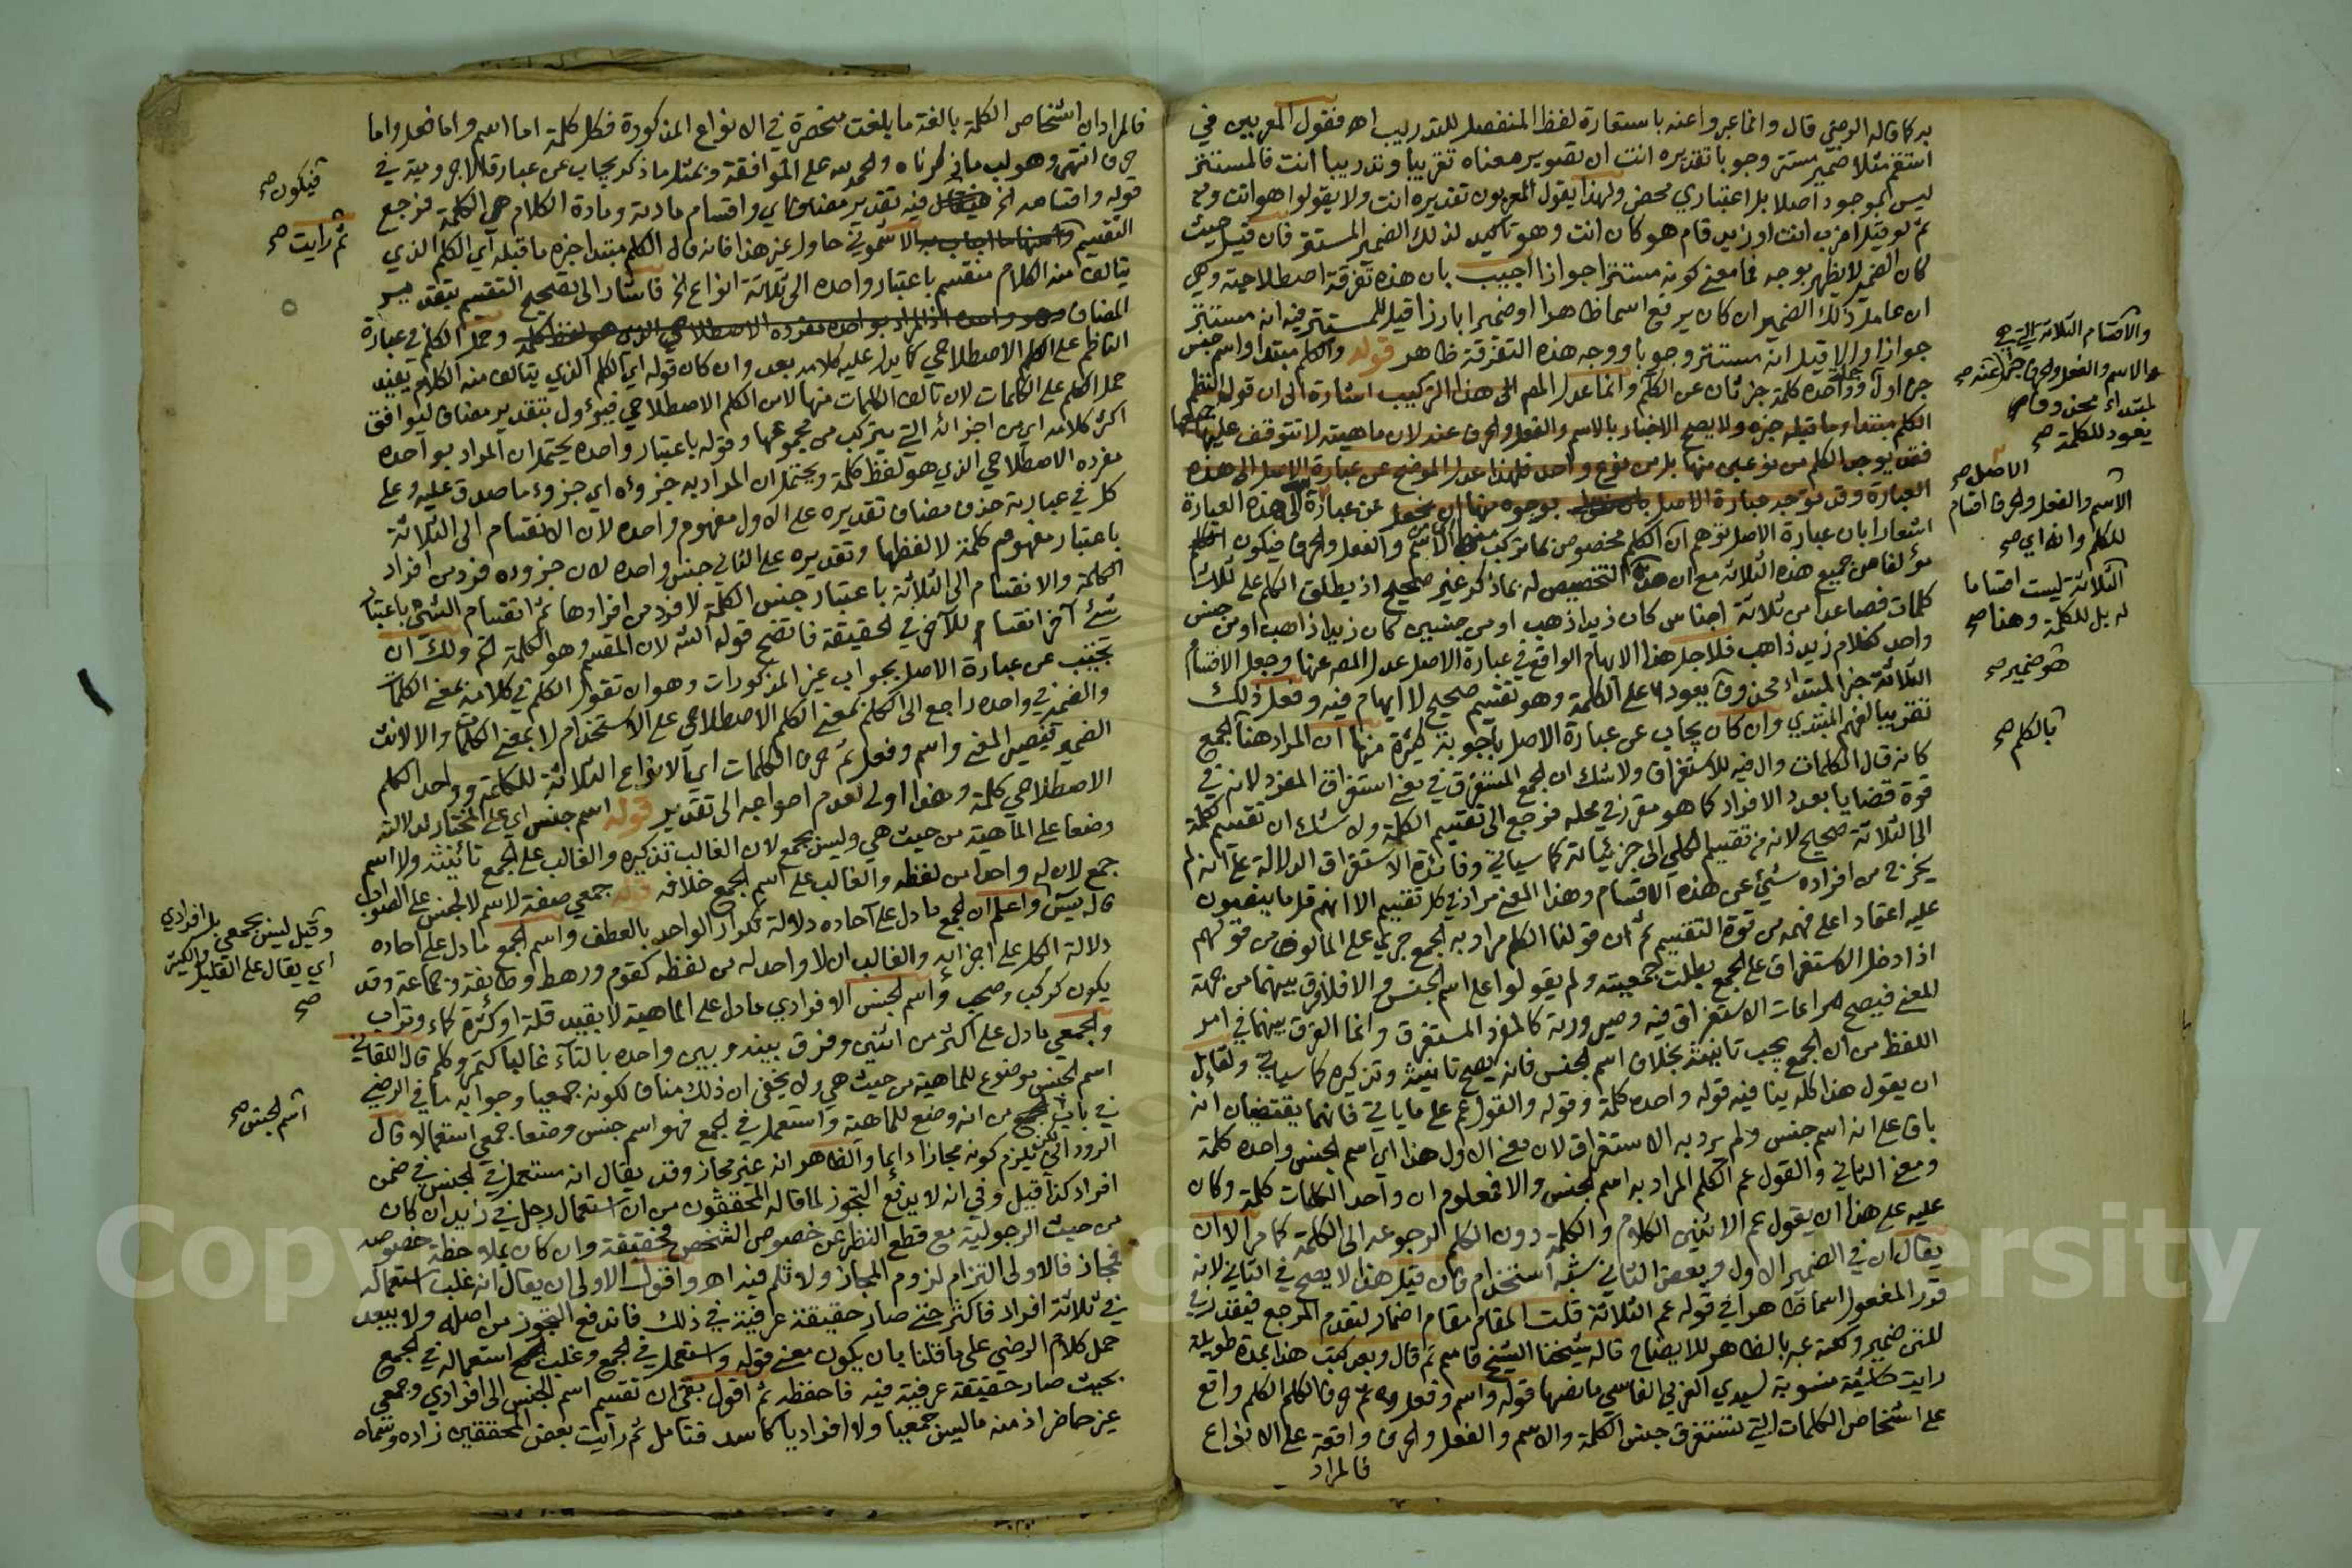 به كما قاله الرضي قال وانما عبروا عنه باستعارة لفظ المنفصل للتدريب اه فقول المعربين في
استقم مثلا ضمير مستتر وجوبا تقديره انت ان تصوير معناه تقريبا وتدريبا انت فالمستتر
ليس بموجود اصلا بل اعتباري محض ولهذا يقول المعربون تقديره انت ولا يقولوا هو انت ومن
ثم لو قيل اضرب انت او زيد قام هو كان انت وهو تأكيد لذلك الضمير المستقر فان قيل حيث
كان الضمير لا يظهر بوجه فما معنى كونه مستترا جوازا اجيب بان هذه تفرقة اصطلاحية وهي
ان عامل ذلك الضمير ان كان يرفع اسما ظاهرا او ضميرا بارزا قيل للمستتر فيه انه مستتر
جوازا والا قيل انه مستتر وجوبا ووجه هذه التفرقة ظاهر قوله والكلم مبتدا واسم جنس
خبر اول وواحده كلمة خبر ثان عن الكلم وانما عدل المص الى هذا التركيب اشارة الى ان قول النظم
الكلم مبتدا وما قبله خبره ولا يصح الاخبار بالاسم والفعل والحرف عنه لان ماهيته لا تتوقف عليها
فقد يوجد الكلم من نوعين منها بل من نوع واحد فلهذا عدل الموضح عن عبارة الاصل الى هذه
العبارة وقد توجه عبارة الاصل بوجوه منها ان عن عبارة الى هذه العبارة
اشعارا بان عبارة الاصل توهم ان الكلم مخصوص بما تركب من الاسم والفعل والحرف فيكون الكلم
مؤلفا من جميع هذه الثلاثة مع ان هذا التخصيص له بما ذكر غير صحيح اذ يطلق الكلم على ثلاث
كلمات فصاعدا من ثلاثة اجناس كان زيدا ذهب او من جنسين كان زيدا ذاهب او من جنس
واحد كغلام زيد ذاهب فلاجل هذا الابهام الواقع في عبارة الاصل عدل المص عنها وجعل الاقسام
الثلاثة خبر المبتداء محذوف يعود على الكلمة وهو تقسيم صحيح لا ايهام فيه وفعل ذلك
تقريبا لفهم المبتدي وان كان يجاب عن عبارة الاصل بأجوبة كثيرة منها ان المراد هنا الجمع
كانه قال الكلمات وال فيه للاستغراق ولا شك ان الجمع المستغرق في معنى استغراق المفرد لانه في
قوة قضايا بعدد الافراد كما هو مقرر في محله فرجع الى تقسيم الكلمة ولا شك ان تقسيم الكلمة
الى الثلاثة صحيح لانه من تقسيم الكلي الى جزئياته كما سياتي وفائدة الاستغراق الدلالة على انه لم
يخرج من افراده شيئ عن هذه الاقسام وهذا المعنى مراد في كل تقسيم الا انهم قل ما ينبهون
عليه اعتمادا على فهمه من قوة التقسيم ثم ان قولنا الكلم مراد به الجمع جري على المالوف من قولهم
اذا دخل الاستغراق على الجمع بطلت جمعيته ولم يقولوا على اسم الجنس والا فلا فرق بينهما من جهة
المعنى فيصح مراعات الاستغراق فيه وصيرورته كالمفرد المستغرق وانما الفرق بينهما في امر
اللفظ من ان الجمع يجب تانيثه بخلاف اسم الجنس فانه يصح تانيثه وتذكيره كما سياتي ولقائل
ان يقول هذا كله ينافيه قوله واحده كلمة وقوله والقول عم على ما ياتي فانهما يقتضيان انه
باق على انه اسم جنس ولم يرد به الاستغراق لان معنى الاول هذا اي اسم الجنس واحده كلمة
ومعنى الثاني والقول عم الكلم المراد به اسم الجنس والا فمعلوم ان واحد الكلمات كلمة وكان
عليه على هذا ان يقول عم الاثنين الكلام والكلمة دون الكلم لرجوعه الى الكلمة كما مر الا ان
يقال ان في الضمير الاول وبعض الثاني شبه استخدام فان قيل هذا لا يصح في الثاني لانه
قدر المفعول اسما ظاهرا في قوله عم الثلاثة قلت المقام مقام اضمار لتقدم المرجع فيقدر في
المتن ضمير وكعنه عبر بالظاهر للايضاح قاله شيخنا الشيخ قاسم ثم قال وبعد كتب هذا بمدة طويلة
رايت حاشية منسوبة لسيدي العربي الفاسي ما نصها قوله واسم وفعل ثم حرف الكلم الكلم واقع
على اشخاص الكلمات التي تستغرق جنس الكلمة والاسم والفعل والحرف واقعة على الانواع
فالمراد
والاقسام الثلاثة التي هي
الاسم والفعل والحرف خبرا عنه صح
لمبتداء محذوف
يعود للكلمة صح
الاصل صح
الاسم والفعل والحرف اقسام
للكلم وانه اي صح
الثلاثة ليست اقساما
له بل للكلمة وهذا صح
هو ضمير صح
بالكلم صح
فالمراد ان اشخاص الكلمة بالغة ما بلغت منحصرة في الانواع المذكورة فكل كلمة اما اسم واما فعل واما
حرف انتهى وهو لب ما ذكرناه والحمد لله على الموافقة وبمثل ما ذكر يجاب عن عبارة الاجرومية في
قوله واقسامه الخ فيه تقدير مضاف اي واقسام مادته ومادة الكلام هي الكلمة فرجع
التقسيم الاشموني حاول غير هذا فانه قال الكلم مبتدا خبره ما قبله اي الكلم الذي
يتالف منه الكلام منقسم باعتبار واحده الى ثلاثة انواع الخ فاشار الى تصحيح التقسيم بتقدير
المضاف وحمل الكلم في عبارة
الناظم على الكلم الاصطلاحي كما يدل عليه كلامه بعد وان كان قوله اي الكلم الذي يتالف منه الكلام يفيد
حمل الكلم على الكلمات لان تالف الكلمات منها لا من الكلم الاصطلاحي فيؤول بتقدير مضاف ليوافق
اكثر كلامه اي من اجزائه التي يتركب من مجموعها وقوله باعتبار واحده يحتمل ان المراد بواحده
مفرده الاصطلاحي الذي هو لفظ كلمة ويحتمل ان المراد به جزءه اي جزء ما صدق عليه وعلى
كل في عبارته حذف مضاف تقديره على الاول مفهوم واحده لان الانقسام الى الثلاثة
باعتبار مفهوم كلمة لا لفظها وتقديره على الثاني جنس واحده لان جزءه فرد من افراد
الكلمة والانقسام الى الثلاثة باعتبار جنس الكلمة لا فرد من افرادها ثم انقسام الشئ باعتبار
شئ آخر انقسام للآخر في الحقيقة فاتضح قوله الشه لان المقسم هو الكلمة ثم ولك ان
تجيب عن عبارة الاصل بجواب غير المذكورات وهو ان تقول الكلم في كلامه بمعنى الكلمات
والضمير في واحده راجع الى الكلم بمعنى الكلم الاصطلاحي على الاستخدام لا بمعنى الكلمات والا لانث
الضمير فيصير المعنى واسم وفعل ثم حرف الكلمات اي الانواع الثلاثة للكلمة وواحد الكلم
الاصطلاحي كلمة وهذا اولى لعدم احواجه الى تقدير قوله اسم جنس اي على المختار لدلالته
وضعا على الماهية من حيث هي وليس بجمع لان الغالب تذكيره والغالب على الجمع تانيثه ولا اسم
جمع لان له واحدا من لفظه والغالب على اسم الجمع خلافه قوله جمعي صفة لاسم لا لجنس على الصواب
قاله يس واعلم ان الجمع ما دل على آحاده دلالة تكرار الواحد بالعطف واسم الجمع ما دل على احاده
دلالة الكل على اجزائه والغالب ان لا واحد له من لفظه كقوم ورهط وطائفة وجماعة وقد
يكون كركب وصحب واسم الجنس الافرادي ما دل على الماهية لا بقيد قلة او كثرة كماء وتراب
والجمعي ما دل على اكثر من اثنين وفرق بينه وبين واحده بالتاء غالبا كتمر وكلم قال اللقاني
اسم الجنس موضوع للماهية من حيث هي ولا يخفى ان ذلك مناف لكونه جمعيا وجوابه ما في الرضي
في باب من انه وضع للماهية واستعمل في الجمع فهو اسم جنس وضعا جمعي استعمالا قال
الروداني فيلزم كونه مجازا دايما والظاهر انه غير مجاز وقد يقال انه مستعمل في الجنس في ضمن
افراد كذا قيل وفي انه لا يدفع التجوز لما قاله المحققون من ان استعمال رجل في زيد ان كان
من حيث الرجولية مع قطع النظر عن خصوص الشخص فحقيقة وان كان بملاحظة خصوصه
فمجاز فالاولى التزام لزوم المجاز ولا ثلم فيه اه واقول الاولى ان يقال انه غلب استعماله
في ثلاثة افراد فاكثر حتى صار حقيقة عرفية في ذلك فاندفع التجوز من اصله ولا يبعد
حمل كلام الرضي على ما قلنا بان يكون معنى قوله واستعمل في الجمع وغلب استعماله في الجمع
بحيث صار حقيقة عرفية فيه فاحفظه ثم اقول بقي ان تقسيم اسم الجنس الى افرادي وجمعي
غير حاضر اذ منه ما ليس جمعيا ولا افراديا كاسد فتامل ثم رايت بعض المحققين زاده وسماه
فيكون صح
ثم رايت صح
وقيل ليس بجمعي بل افرادي
اي يقال على القليل والكثير
صح
اسم الجنس صح
Copyright © King Saud University